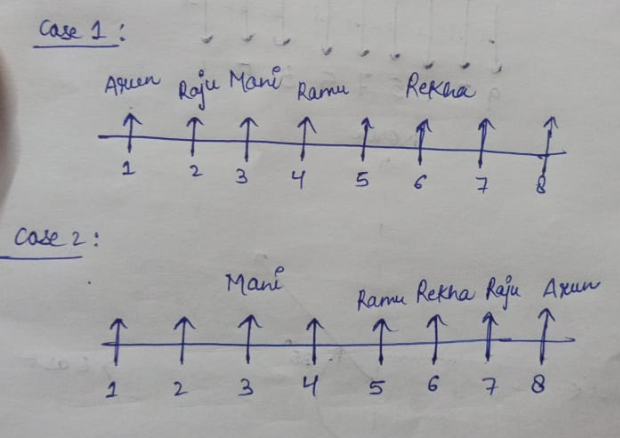 Case 1 :
Arun Raju Mani Ramu Rekha
1 2 3 4 5 6 7 8
Case 2 :
Mani Ramu Rekha Raju Arun
1 2 3 4 5 6 7 8